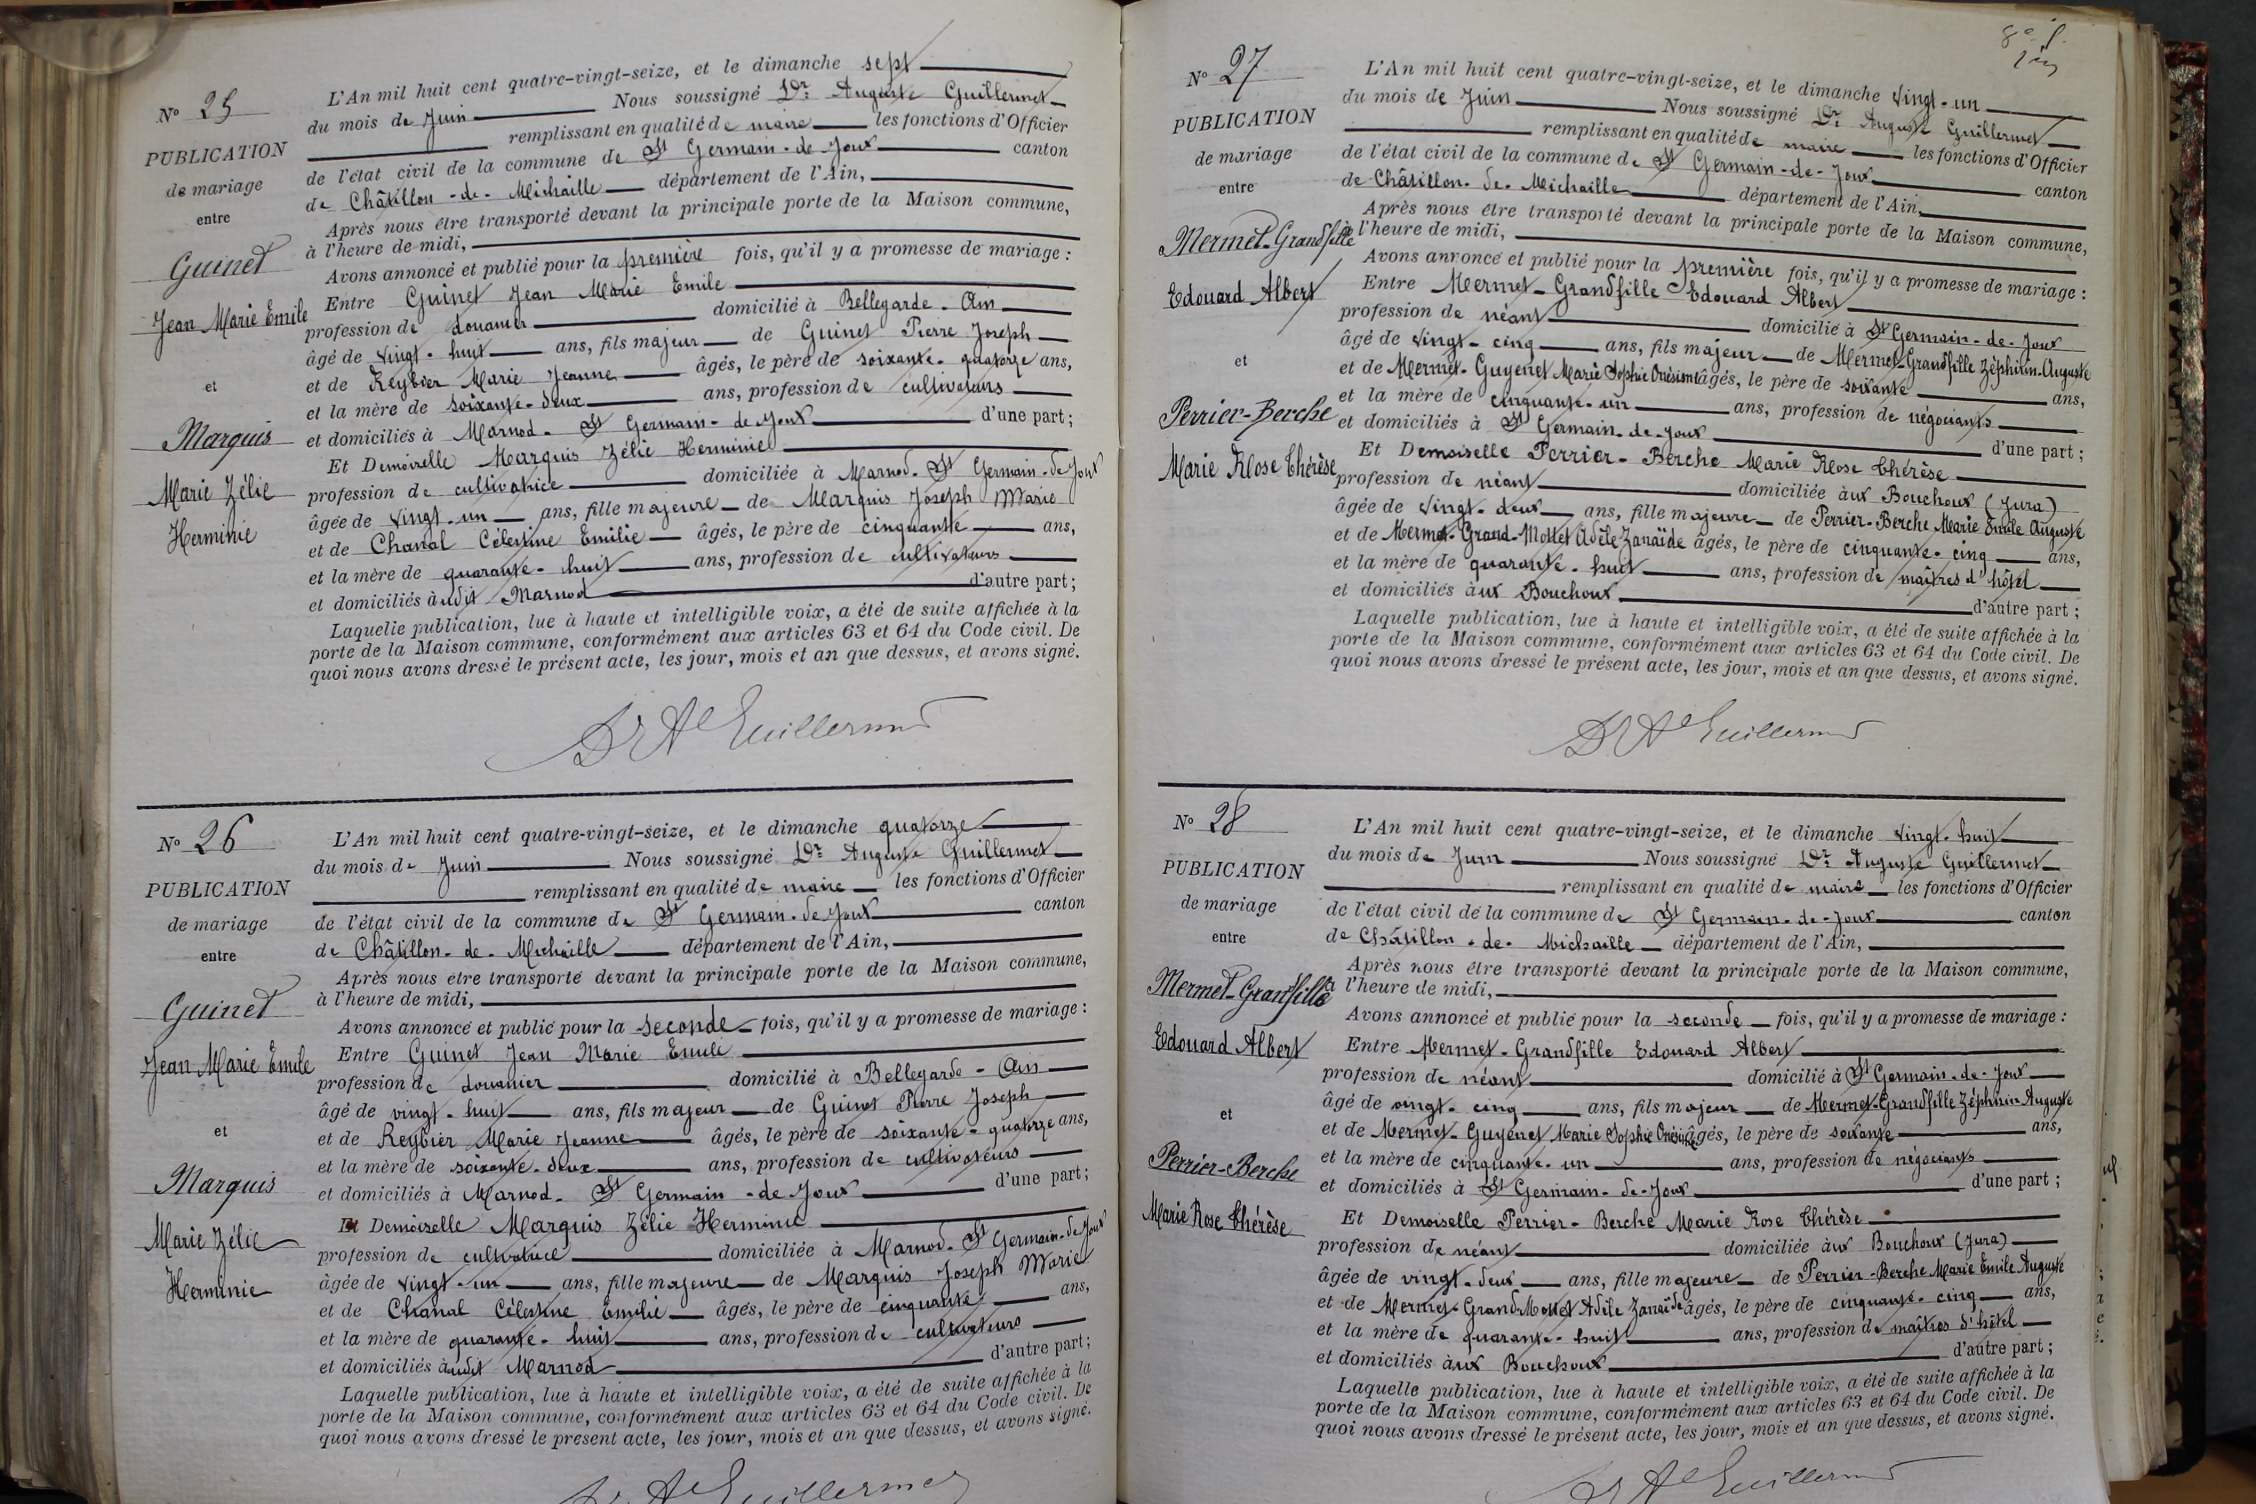 N° 25
PUBLICATION
de mariage
entre
Guinet
Jean Marie Emile
et
Marquis
Marie Zélie
Herminie
L'An mil huit cent quatre-vingt-seize, et le dimanche sept
du mois de Juin Nous soussigné Dr Auguste Guillermet
remplissant en qualité de maire les fonctions d'Officier
de l'état civil de la commune de St Germain-de-Joux canton
de Châtillon-de-Michaille département de l'Ain,
Après nous être transporté devant la principale porte de la Maison commune,
à l'heure de midi,
Avons annoncé et publié pour la première fois, qu'il y a promesse de mariage :
Entre Guinet Jean Marie Emile
profession de douanier domicilié à Bellegarde - Ain
âgé de vingt-huit ans, fils majeur de Guinet Pierre Joseph
et de Reybier Marie Jeanne âgés, le père de soixante-quatorze ans,
et la mère de soixante-deux ans, profession de cultivateurs
et domiciliés à Marnod - St Germain-de Joux d'une part ;
Et Demoiselle Marquis Zélie Herminie
profession de cultivatrice domiciliée à Marnod - St Germain-de Joux
âgée de vingt-un ans, fille majeure de Marquis Joseph Marie
et de Chanal Célestine Emilie âgés, le père de cinquante ans,
et la mère de quarante-huit ans, profession de cultivateurs
et domiciliés àudit Marnod d'autre part ;
Laquelle publication, lue à haute et intelligible voix, a été de suite affichée à la
porte de la Maison commune, conformément aux articles 63 et 64 du Code civil. De
quoi nous avons dressé le présent acte, les jour, mois et an que dessus, et avons signé.
Dr Ate Guillermet
N° 26
PUBLICATION
de mariage
entre
Guinet
Jean Marie Emile
et
Marquis
Marie Zélie
Herminie
L'An mil huit cent quatre-vingt-seize, et le dimanche quatorze
du mois de Juin Nous soussigné Dr Auguste Guillermet
remplissant en qualité de maire les fonctions d'Officier
de l'état civil de la commune de St Germain-de Joux canton
de Châtillon-de-Michaille département de l'Ain,
Après nous être transporté devant la principale porte de la Maison commune,
à l'heure de midi,
Avons annoncé et publié pour la seconde fois, qu'il y a promesse de mariage :
Entre Guinet Jean Marie Emile
profession de douanier domicilié à Bellegarde - Ain
âgé de vingt-huit ans, fils majeur de Guinet Pierre Joseph
et de Reybier Marie Jeanne âgés, le père de soixante-quatorze ans,
et la mère de soixante-deux ans, profession de cultivateurs
et domiciliés à Marnod - St Germain-de Joux d'une part ;
Et Demoiselle Marquis Zélie Herminie
profession de cultivatrice domiciliée à Marnod - St Germain-de Joux
âgée de vingt-un ans, fille majeure de Marquis Joseph Marie
et de Chanal Célestine Emilie âgés, le père de cinquante ans,
et la mère de quarante-huit ans, profession de cultivateurs
et domiciliés àudit Marnod d'autre part ;
Laquelle publication, lue à haute et intelligible voix, a été de suite affichée à la
porte de la Maison commune, conformément aux articles 63 et 64 du Code civil. De
quoi nous avons dressé le présent acte, les jour, mois et an que dessus, et avons signé.
Dr Ate Guillermet
N° 27
PUBLICATION
de mariage
entre
Mermet-Grandfille
Edouard Albert
et
Perrier-Berche
Marie Rose Thérèse
L'An mil huit cent quatre-vingt-seize, et le dimanche vingt-un
du mois de Juin Nous soussigné Dr Auguste Guillermet
remplissant en qualité de maire les fonctions d'Officier
de l'état civil de la commune de St Germain-de-Joux canton
de Châtillon-de-Michaille département de l'Ain,
Après nous être transporté devant la principale porte de la Maison commune,
à l'heure de midi,
Avons annoncé et publié pour la première fois, qu'il y a promesse de mariage :
Entre Mermet-Grandfille Edouard Albert
profession de néant domicilié à St Germain-de-Joux
âgé de vingt-cinq ans, fils majeur de Mermet-Grandfille Zéphirin-Auguste
et de Mermet-Guyénet Marie Sophie Onésime âgés, le père de soixante ans,
et la mère de cinquante-un ans, profession de négociants
et domiciliés à St Germain-de-Joux d'une part ;
Et Demoiselle Perrier-Berche Marie Rose Thérèse
profession de néant domiciliée àux Bouchoux (Jura)
âgée de vingt-deux ans, fille majeure de Perrier-Berche Marie Emile Auguste
et de Mermet-Grand-Mottet Adèle Zanaïde âgés, le père de cinquante-cinq ans,
et la mère de quarante-huit ans, profession de maîtres d'hôtel
et domiciliés àux Bouchoux d'autre part ;
Laquelle publication, lue à haute et intelligible voix, a été de suite affichée à la
porte de la Maison commune, conformément aux articles 63 et 64 du Code civil. De
quoi nous avons dressé le présent acte, les jour, mois et an que dessus, et avons signé.
Dr Ate Guillermet
N° 28
PUBLICATION
de mariage
entre
Mermet-Grandfille
Edouard Albert
et
Perrier-Berche
Marie Rose Thérèse
L'An mil huit cent quatre-vingt-seize, et le dimanche vingt-huit
du mois de Juin Nous soussigné Dr Auguste Guillermet
remplissant en qualité de maire les fonctions d'Officier
de l'état civil de la commune de St Germain-de-Joux canton
de Châtillon-de-Michaille département de l'Ain,
Après nous être transporté devant la principale porte de la Maison commune,
à l'heure de midi,
Avons annoncé et publié pour la seconde fois, qu'il y a promesse de mariage :
Entre Mermet-Grandfille Edouard Albert
profession de néant domicilié à St Germain-de-Joux
âgé de vingt-cinq ans, fils majeur de Mermet-Grandfille Zéphirin Auguste
et de Mermet-Guyénet Marie Sophie Onésime âgés, le père de soixante ans,
et la mère de cinquante-un ans, profession de négociants
et domiciliés à St Germain-de-Joux d'une part ;
Et Demoiselle Perrier-Berche Marie Rose Thérèse
profession de néant domiciliée àux Bouchoux (Jura)
âgée de vingt-deux ans, fille majeure de Perrier-Berche Marie Emile Auguste
et de Mermet-Grand-Mottet Adèle Zanaïde âgés, le père de cinquante-cinq ans,
et la mère de quarante-huit ans, profession de maîtres d'hôtel
et domiciliés àux Bouchoux d'autre part ;
Laquelle publication, lue à haute et intelligible voix, a été de suite affichée à la
porte de la Maison commune, conformément aux articles 63 et 64 du Code civil. De
quoi nous avons dressé le présent acte, les jour, mois et an que dessus, et avons signé.
Dr Ate Guillermet